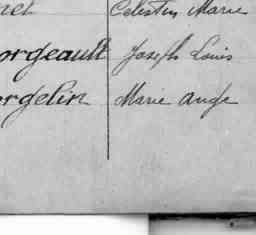 Celestin Marie
orgeault Joseph Louis
orgelin Marie Ange